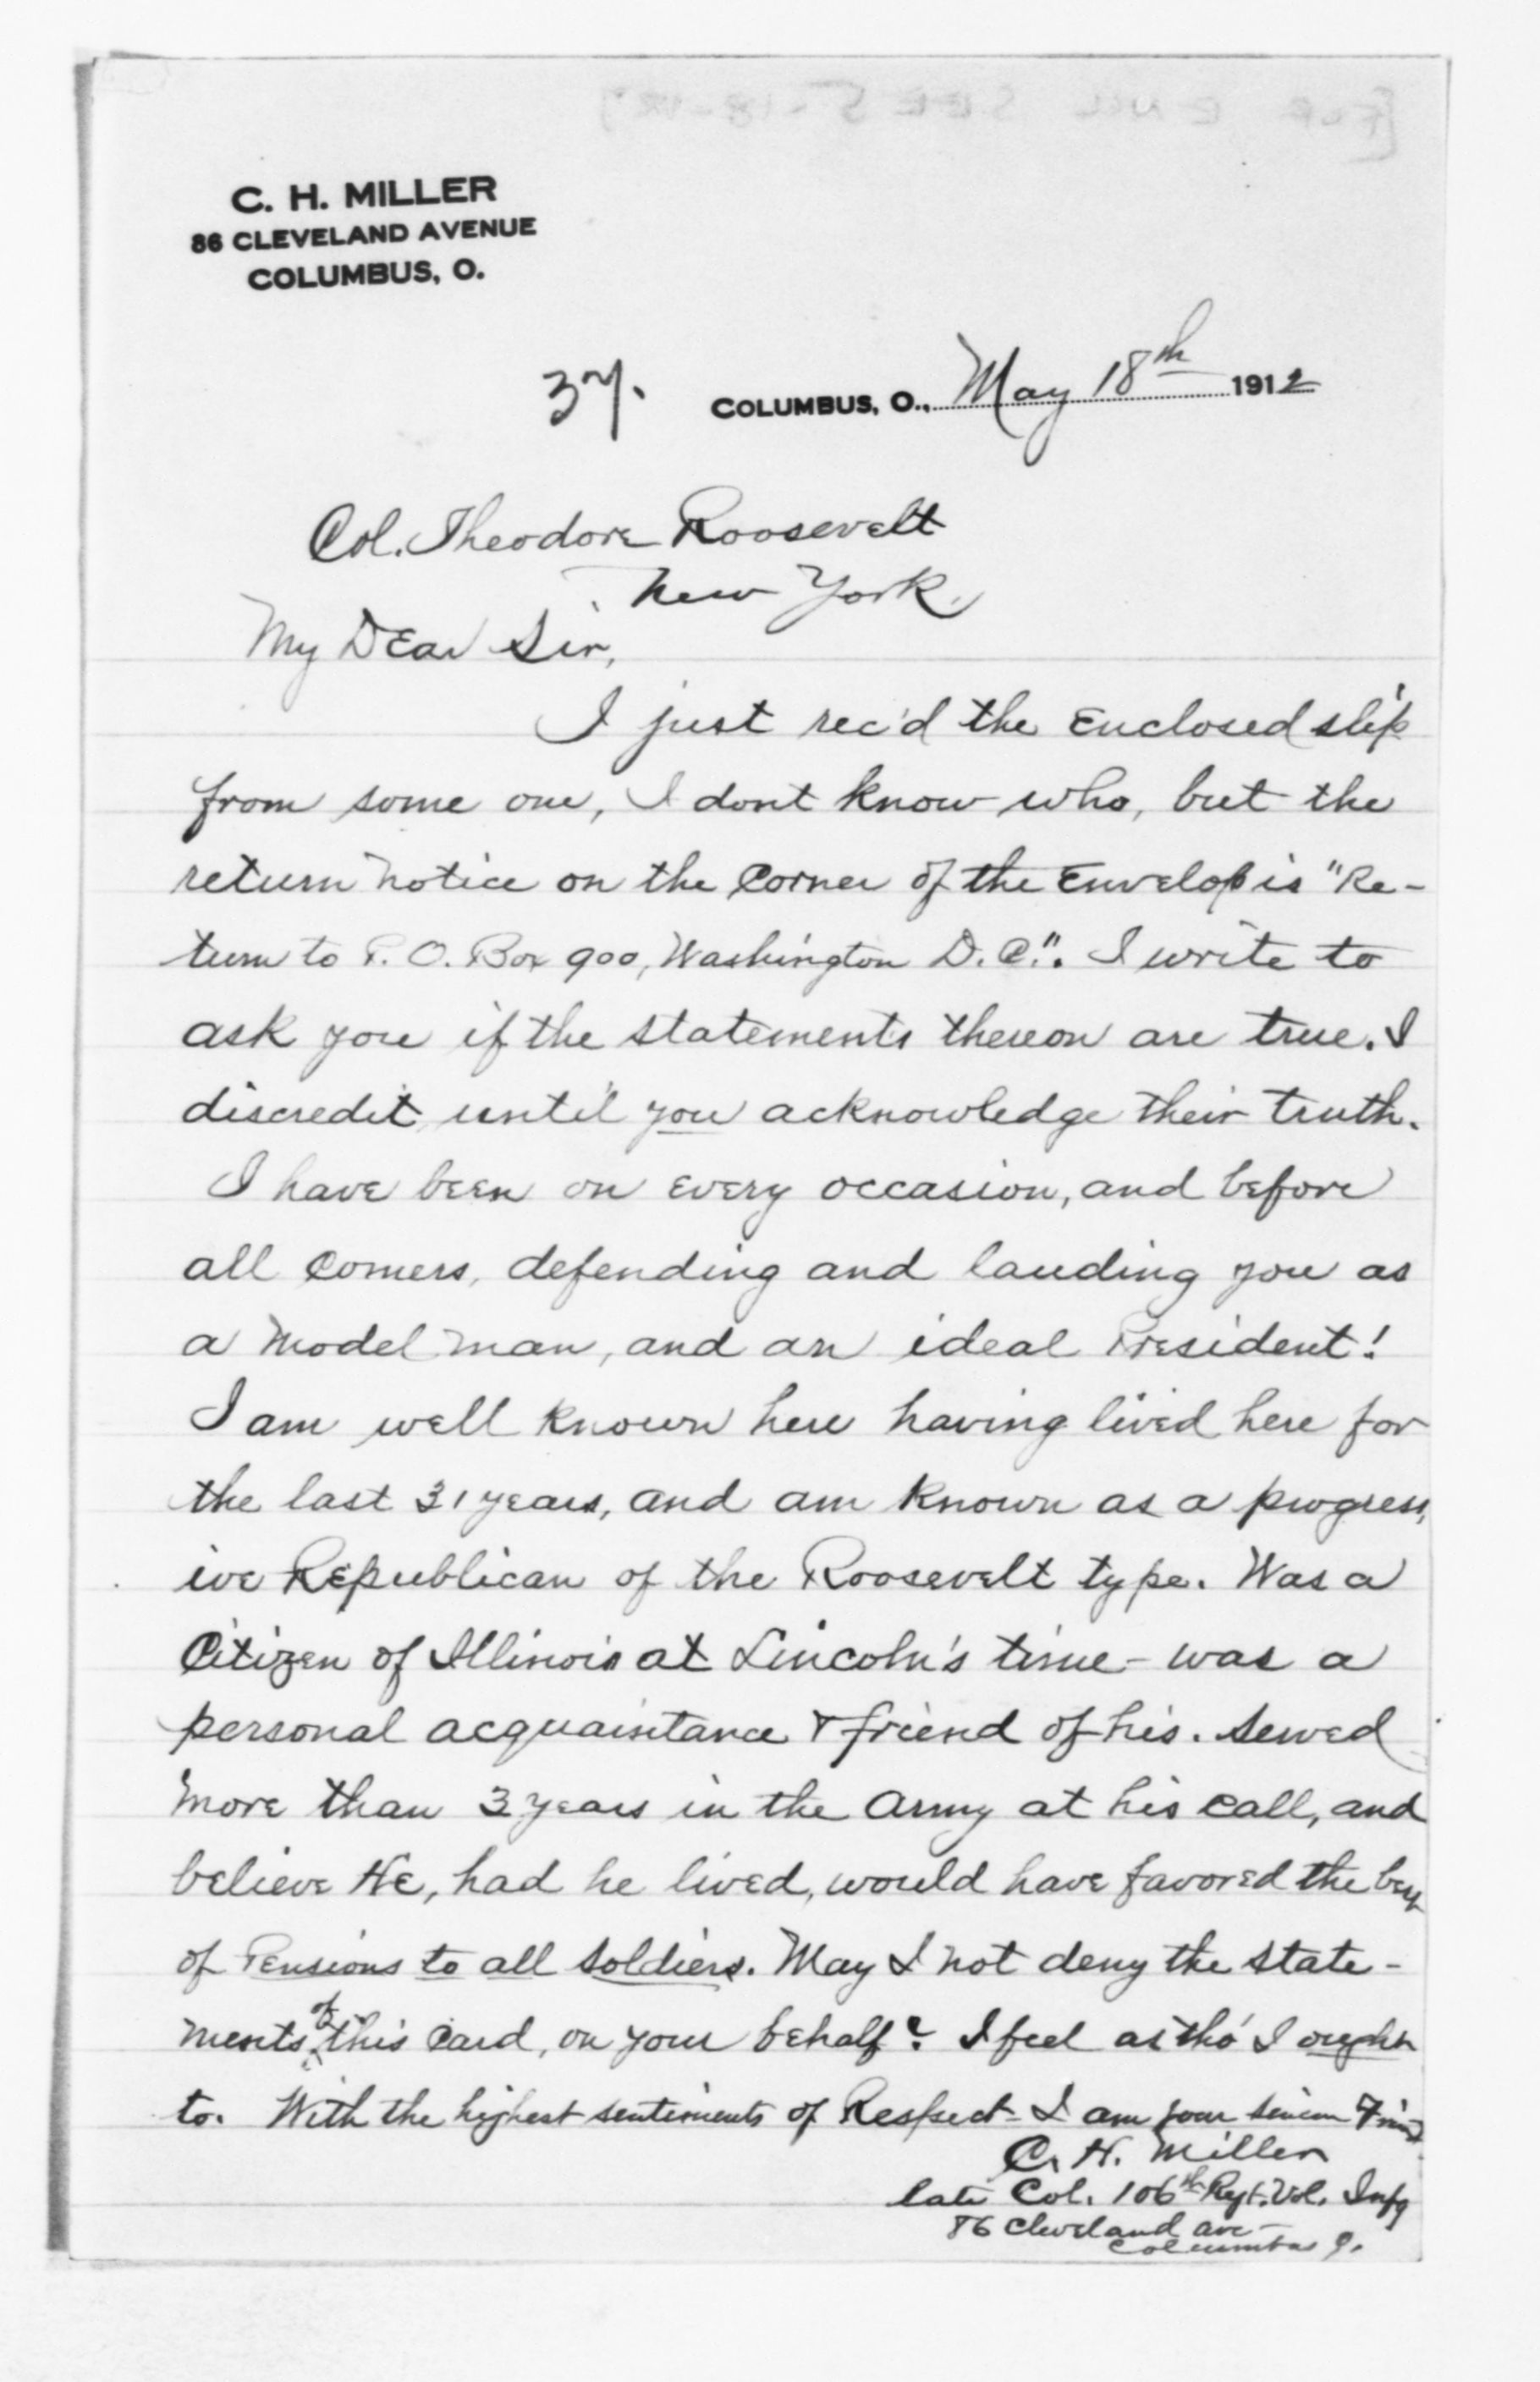 [FOR ENCL SEE 5-18-12?]
C. H. MILLER
86 CLEVELAND AVENUE
COLUMBUS, O.
37.
COLUMBUS, O., May 18th 1912
Col. Theodore Roosevelt
New York.
My Dear Sir,
I just rec'd the Enclosed slip
from some one, I dont know who, but the
return notice on the Corner of the Envelop is "Re-
turn to P. O. Box 900, Washington D. C.". I write to
ask you if the statements thereon are true. I
discredit until you acknowledge their truth.
I have been on every occasion, and before
all Comers, defending and lauding you as
a Model man, and an ideal President!
I am well known here having lived here for
the last 31 years, and am known as a progress
ive Republican of the Roosevelt type. Was a
Citizen of Illinois at Lincoln's time - was a
personal acquaintance & friend of his. Served
more than 3 years in the Army at his call, and
believe He, had he lived, would have favored the best
of Pensions to all soldiers. May I not deny the state-
ments of this Card, on your behalf? I feel as tho' I ought
to. With the highest sentiments of Respect - I am your sincere Friend
C. H. Miller
late Col. 106th Regt. Vol. Infy
86 Cleveland ave -
Columbus O.